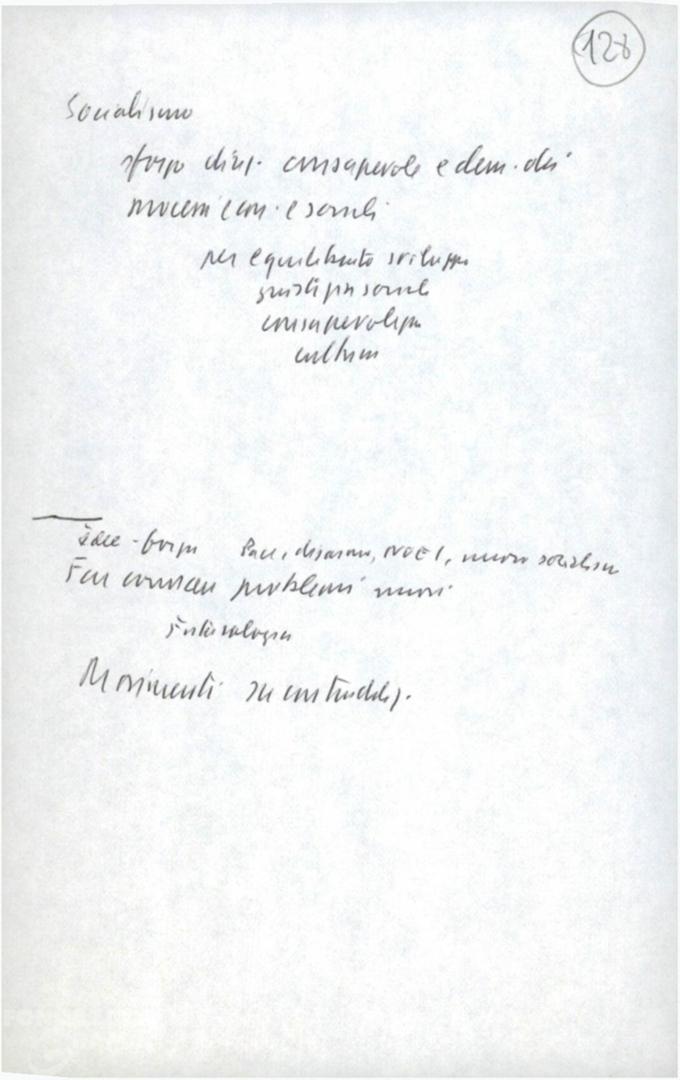 128
Socialismo
sforzo consapevole e dem. dei
econ. e sociali
per equilibrato sviluppo
giustizia sociale
consapevolezza
cultura
Idee-forza Pace, disarmo, NOEI, nuovo socialismo
problemi nuovi
Movimenti su contraddiz.